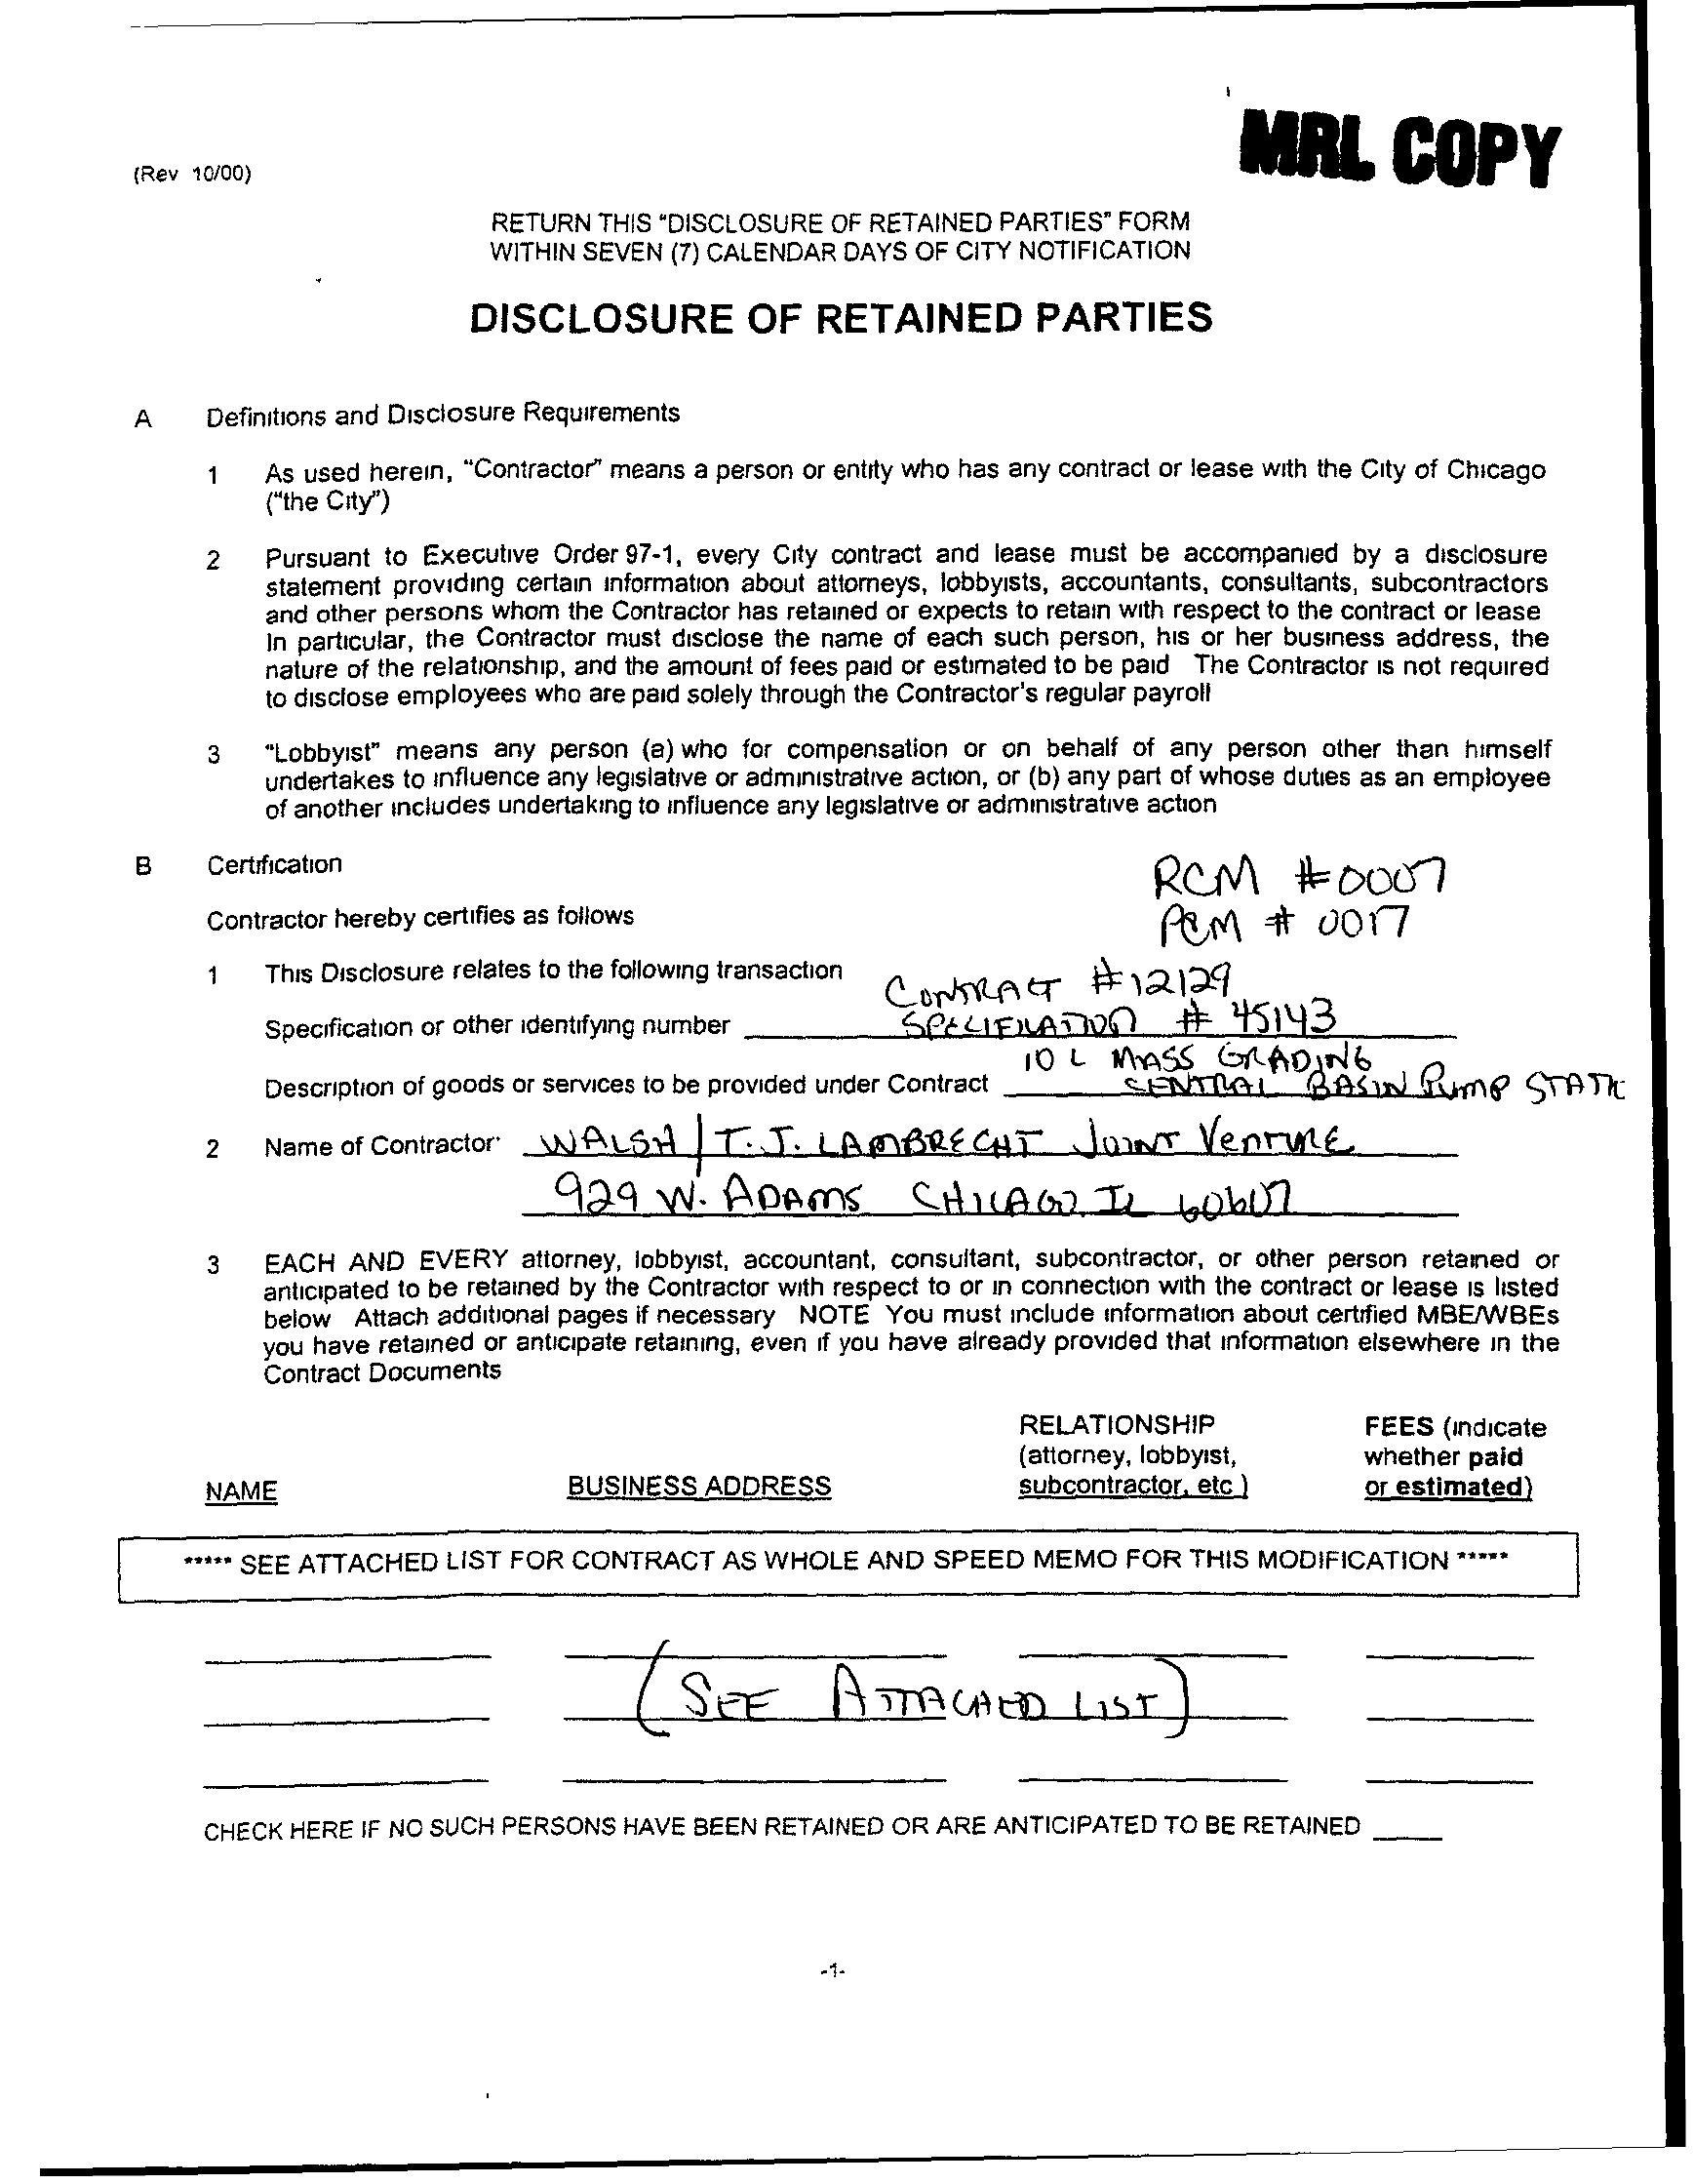 MRL COPY
(Rev 10/00)
RETURN THIS "DISCLOSURE OF RETAINED PARTIES" FORM
WITHIN SEVEN (7) CALENDAR DAYS OF CITY NOTIFICATION
DISCLOSURE OF RETAINED PARTIES
A Definitions and Disclosure Requirements
1 As used herein, "Contractor" means a person or entity who has any contract or lease with the City of Chicago
("the City")
2 Pursuant to Executive Order 97-1, every City contract and lease must be accompanied by a disclosure
statement providing certain information about attorneys, lobbyists, accountants, consultants, subcontractors
and other persons whom the Contractor has retained or expects to retain with respect to the contract or lease
In particular, the Contractor must disclose the name of each such person, his or her business address, the
nature of the relationship, and the amount of fees paid or estimated to be paid The Contractor is not required
to disclose employees who are paid solely through the Contractor's regular payroll
3 "Lobbyist" means any person (a) who for compensation or on behalf of any person other than himself
undertakes to influence any legislative or administrative action, or (b) any part of whose duties as an employee
of another includes undertaking to influence any legislative or administrative action
B Certification
RCM #0007
Contractor hereby certifies as follows
PCM # 0017
1 This Disclosure relates to the following transaction
CONTRACT #12129
Specification or other identifying number SPECIFICATION # 45143
10 L MASS GRADING
Description of goods or services to be provided under Contract CENTRAL BASIN PUMP STATIC
2 Name of Contractor: WALSH / T.J. LAMBRECHT JOINT VENTURE
929 W. ADAMS CHICAGO IL 60607
3 EACH AND EVERY attorney, lobbyist, accountant, consultant, subcontractor, or other person retained or
anticipated to be retained by the Contractor with respect to or in connection with the contract or lease is listed
below Attach additional pages if necessary NOTE You must include information about certified MBE/WBEs
you have retained or anticipate retaining, even if you have already provided that information elsewhere in the
Contract Documents
RELATIONSHIP FEES (indicate
(attorney, lobbyist, whether paid
NAME BUSINESS ADDRESS subcontractor, etc ) or estimated)
***** SEE ATTACHED LIST FOR CONTRACT AS WHOLE AND SPEED MEMO FOR THIS MODIFICATION *****
(SEE ATTACHED LIST)
CHECK HERE IF NO SUCH PERSONS HAVE BEEN RETAINED OR ARE ANTICIPATED TO BE RETAINED
-1-